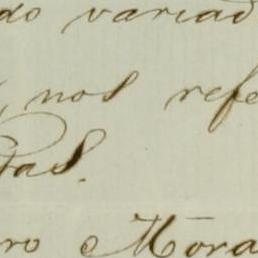 do variad
, nos refe
das.
ro Mora